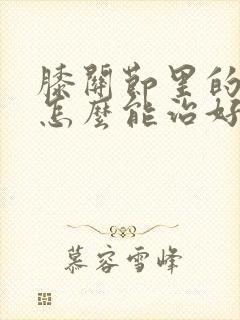 膝關節里的
怎麼能治好
慕容雪峰